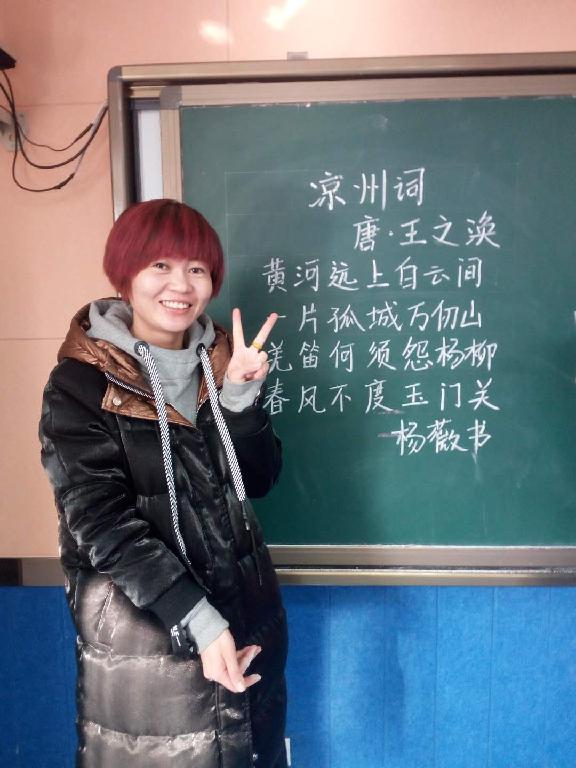 凉州词
唐·王之涣
黄河远上白云间
一片孤城万仞山
羌笛何须怨杨柳
春风不度玉门关
杨薇书